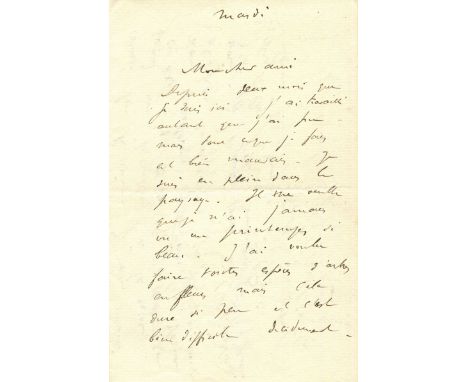 mardi
Mon cher ami
Depuis deux mois que
je suis ici j'ai travaillé
autant que j'ai pu
mais tout ce que je fais
est bien mauvais. Je
suis en plein dans le
paysage. Il me semble
que je n'ai jamais
vu un printemps si
beau. J'ai voulu
faire toutes espèces d'arbres
en fleurs mais cela
dure si peu et c'est
bien difficile décidément